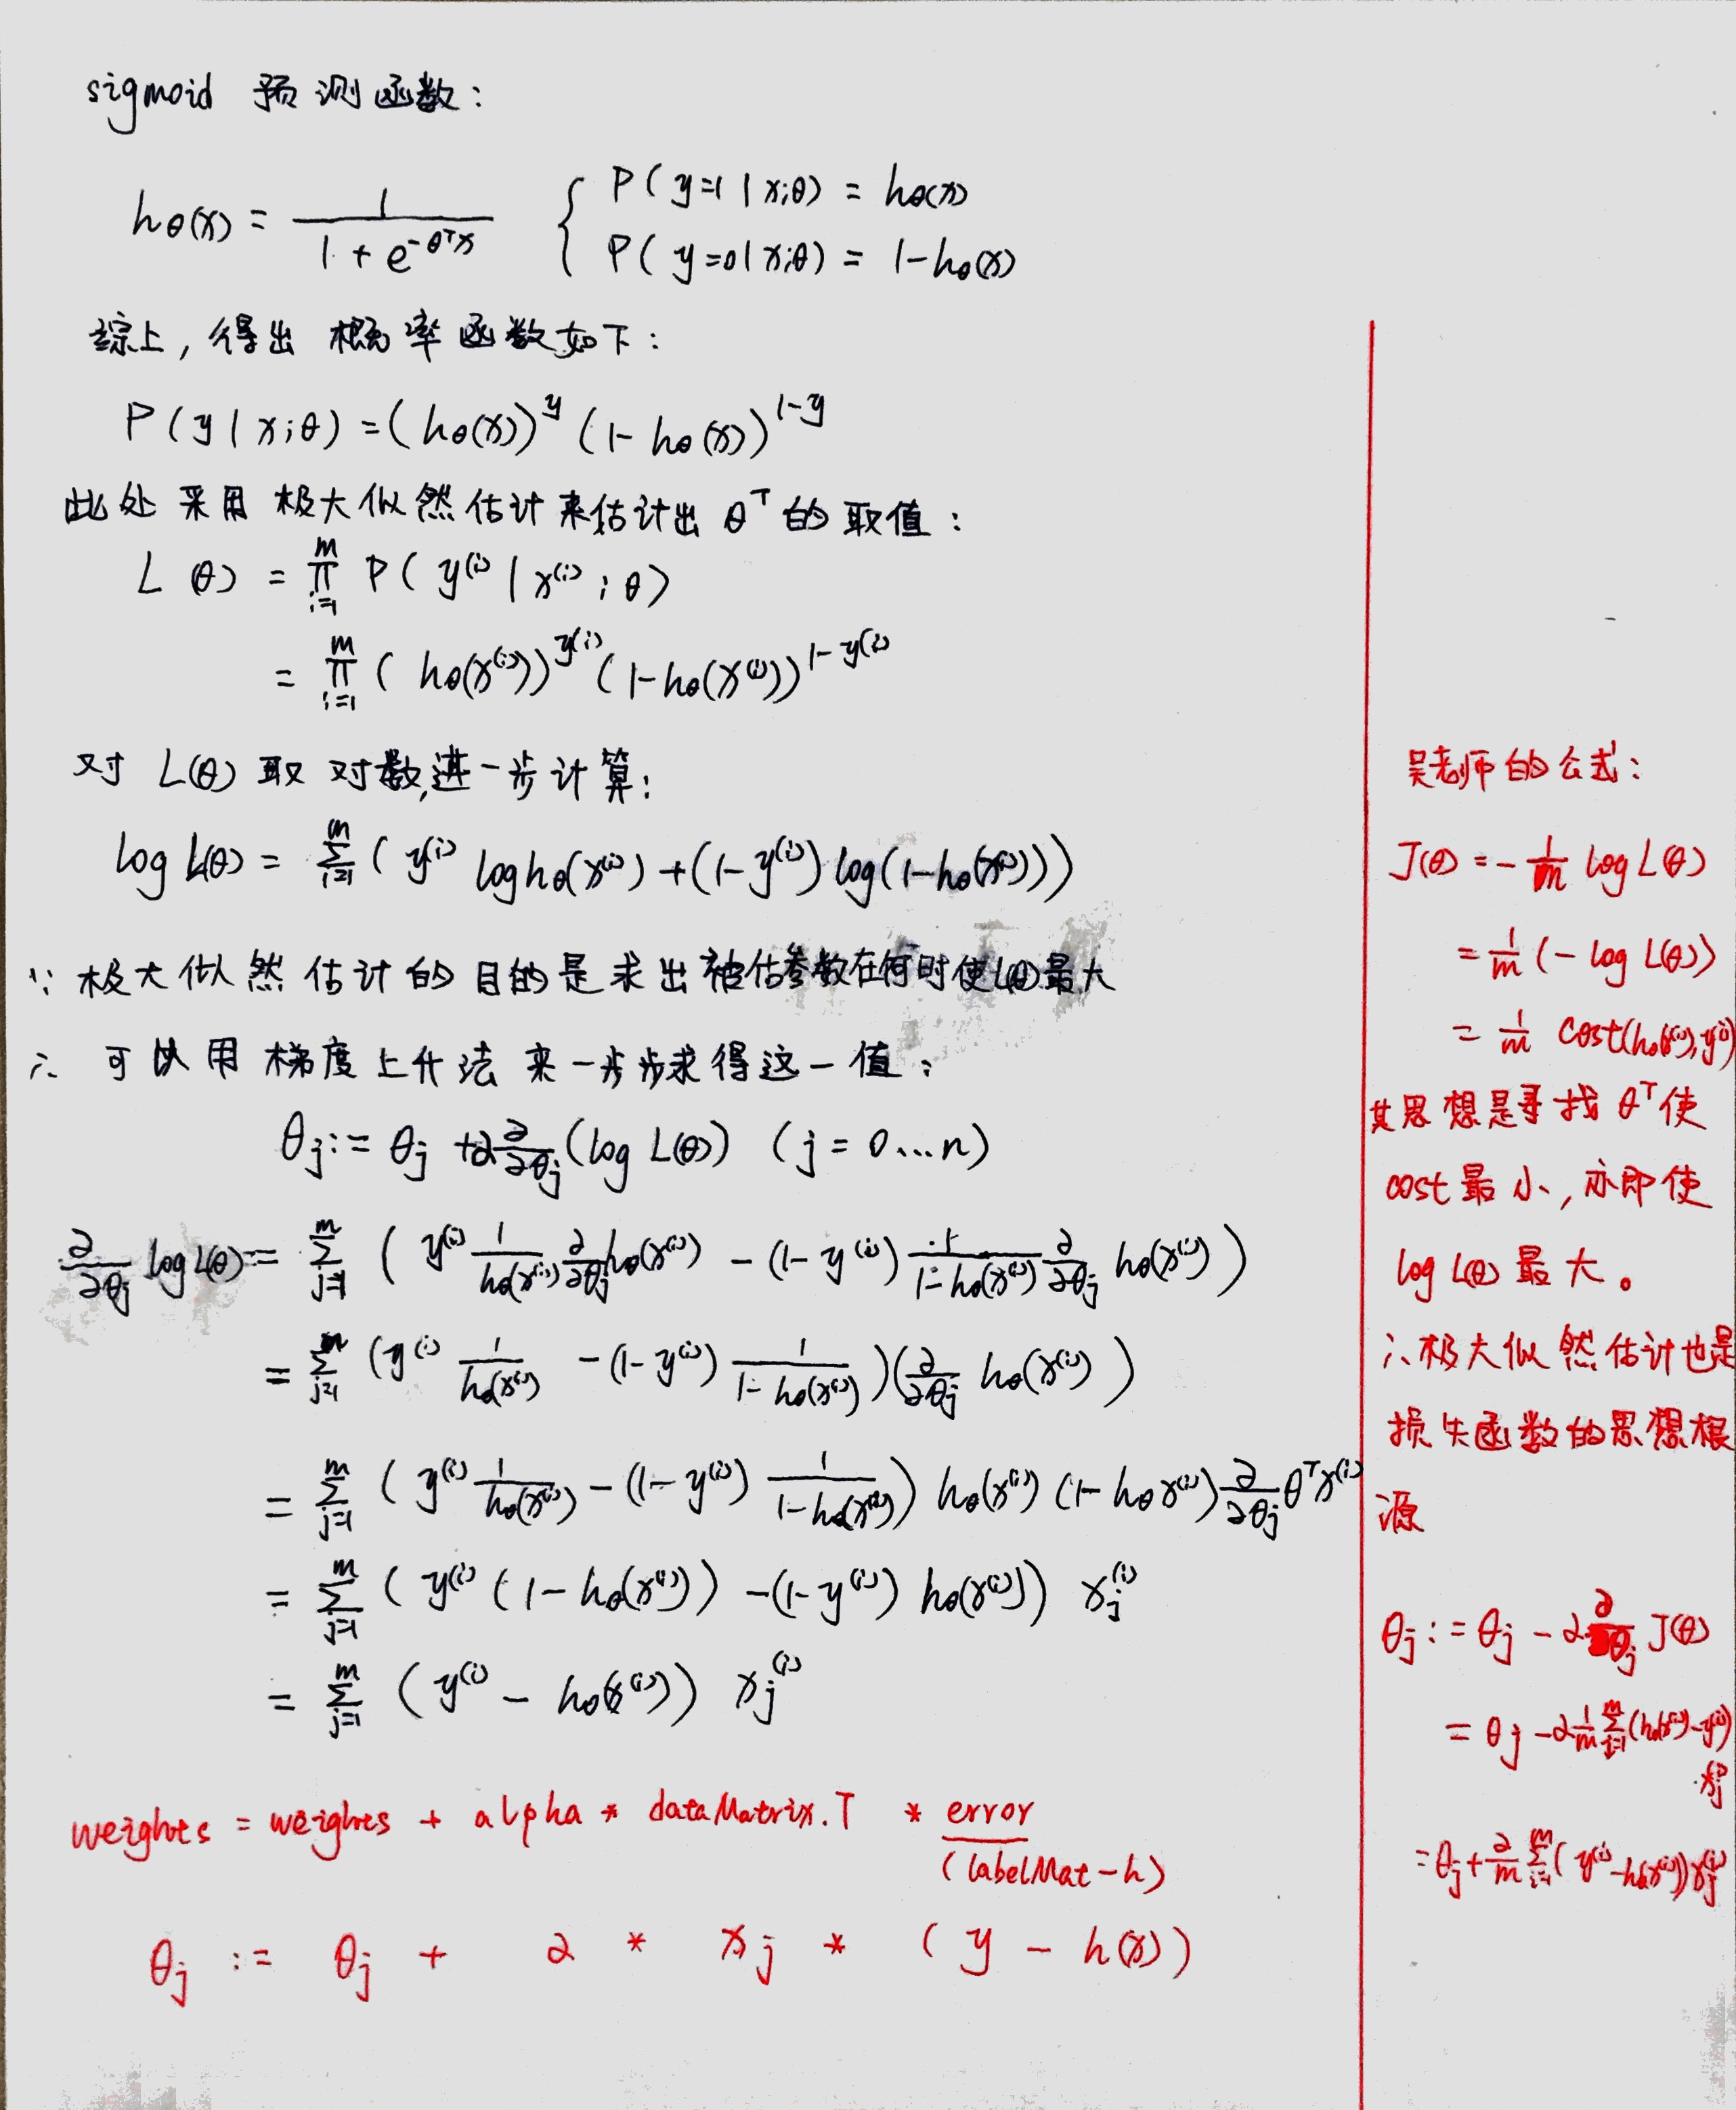 sigmoid 预测函数：
hθ(x) = 1 / (1 + e^(-θᵀx)) { P(y=1|x;θ) = hθ(x)
P(y=0|x;θ) = 1-hθ(x)
综上，得出 概率函数如下：
P(y|x;θ) = (hθ(x))^y (1-hθ(x))^(1-y)
此处采用极大似然估计来估计出 θᵀ 的取值：
L(θ) = ∏_{i=1}^{m} P(y⁽ⁱ⁾|x⁽ⁱ⁾;θ)
= ∏_{i=1}^{m} (hθ(x⁽ⁱ⁾))^(y⁽ⁱ⁾) (1-hθ(x⁽ⁱ⁾))^(1-y⁽ⁱ⁾)
对 L(θ) 取对数,进一步计算：
log L(θ) = ∑_{i=1}^{m} (y⁽ⁱ⁾ log hθ(x⁽ⁱ⁾) + (1-y⁽ⁱ⁾) log(1-hθ(x⁽ⁱ⁾)))
∵ 极大似然估计的目的是求出被估参数在何时使L(θ)最大
∴ 可以用梯度上升法来一步步求得这一值：
θj := θj + α ∂/∂θj (log L(θ)) (j = 0...n)
∂/∂θj log L(θ) = ∑_{j=1}^{m} (y⁽ⁱ⁾ 1/hθ(x⁽ⁱ⁾) ∂/∂θj hθ(x⁽ⁱ⁾) - (1-y⁽ⁱ⁾) 1/(1-hθ(x⁽ⁱ⁾)) ∂/∂θj hθ(x⁽ⁱ⁾))
= ∑_{j=1}^{m} (y⁽ⁱ⁾ 1/hθ(x⁽ⁱ⁾) - (1-y⁽ⁱ⁾) 1/(1-hθ(x⁽ⁱ⁾))) (∂/∂θj hθ(x⁽ⁱ⁾))
= ∑_{j=1}^{m} (y⁽ⁱ⁾ 1/hθ(x⁽ⁱ⁾) - (1-y⁽ⁱ⁾) 1/(1-hθ(x⁽ⁱ⁾))) hθ(x⁽ⁱ⁾) (1-hθ x⁽ⁱ⁾) ∂/∂θj θᵀx⁽ⁱ⁾
= ∑_{j=1}^{m} (y⁽ⁱ⁾ (1-hθ(x⁽ⁱ⁾)) - (1-y⁽ⁱ⁾) hθ(x⁽ⁱ⁾)) xj⁽ⁱ⁾
= ∑_{j=1}^{m} (y⁽ⁱ⁾ - hθ(x⁽ⁱ⁾)) xj⁽ⁱ⁾
weights = weights + alpha * dataMatrix.T * error
(labelMat - h)
θj := θj + α * xj * (y - h(x))
吴老师的公式：
J(θ) = - 1/m log L(θ)
= 1/m (- log L(θ))
= 1/m Cost(hθ(x⁽ⁱ⁾), y⁽ⁱ⁾)
其思想是寻找 θᵀ 使
cost 最小，亦即使
log L(θ) 最大。
∴ 极大似然估计也是
损失函数的思想根
源
θj := θj - α ∂/∂θj J(θ)
= θj - α 1/m ∑_{j=1}^{m} (hθ(x⁽ⁱ⁾) - y⁽ⁱ⁾)
·xj⁽ⁱ⁾
= θj + α/m ∑_{i=1}^{m} (y⁽ⁱ⁾ - hθ(x⁽ⁱ⁾)) xj⁽ⁱ⁾